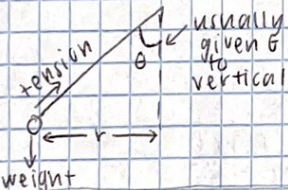 tension
usually
given θ
to
vertical
θ
r
weight